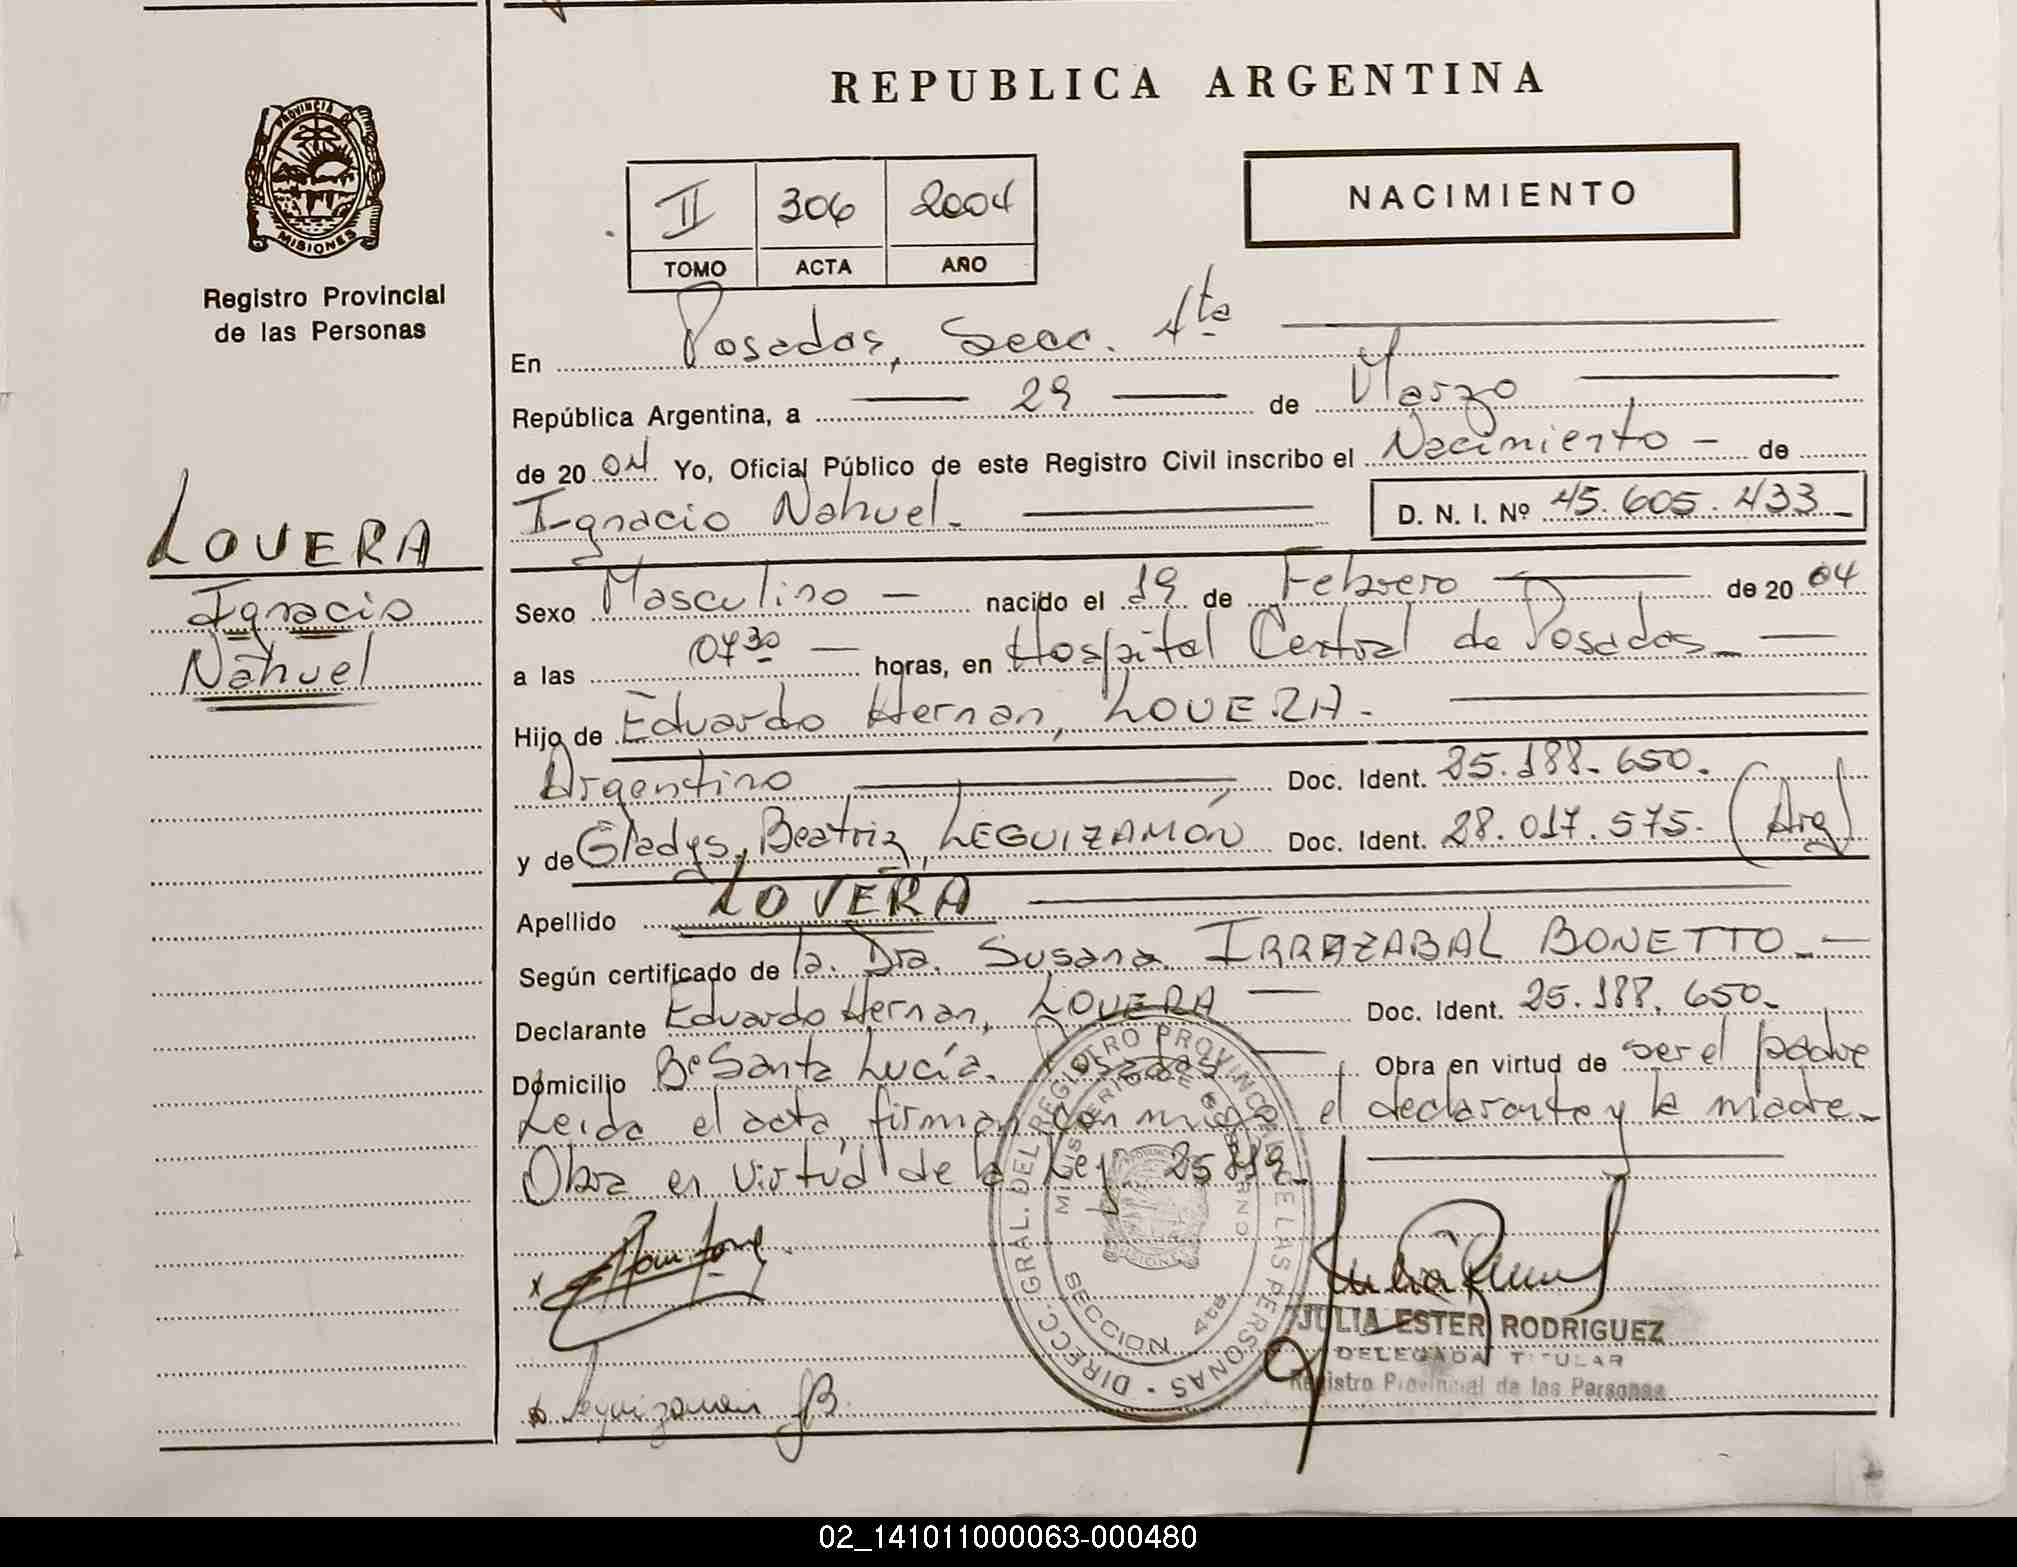 REPUBLICA ARGENTINA
PROVINCIA DE
MISIONES
Registro Provincial
de las Personas
II 306 2004
TOMO ACTA AÑO
NACIMIENTO
LOVERA
Ignacio
Nahuel
En Posadas, Secc. 4ta
República Argentina, a 29 de Marzo
de 20 04 Yo, Oficial Público de este Registro Civil inscribo el Nacimiento - de
Ignacio Nahuel.- D. N. I. Nº 45.605.433_
Sexo Masculino - nacido el 19 de Febrero de 20 04
a las 0730 - horas, en Hospital Central de Posadas._
Hijo de Eduardo Hernan, LOVERA.-
Argentino Doc. Ident. 25.188.650.
y de Gladys, Beatriz, LEGUIZAMÓN Doc. Ident. 28.017.575. (Arg)
Apellido LOVERA
Según certificado de la. Dra. Susana IRRAZABAL BONETTO._
Declarante Eduardo Hernan, LOVERA Doc. Ident. 25.188.650._
Domicilio Bº Santa Lucía. Posadas Obra en virtud de ser el padre
Leida el acta, firman con migo el declarante y la madre._
Obra en virtúd de la Ley
DIRECC. GRAL. DEL REGISTRO PROVINCIAL DE LAS PERSONAS
MINISTERIO DE GOBIERNO
SECCION 4ta
JULIA ESTER RODRIGUEZ
DELEGADA TITULAR
Registro Provincial de las Personas
Leguizamon GB.
02_141011000063-000480